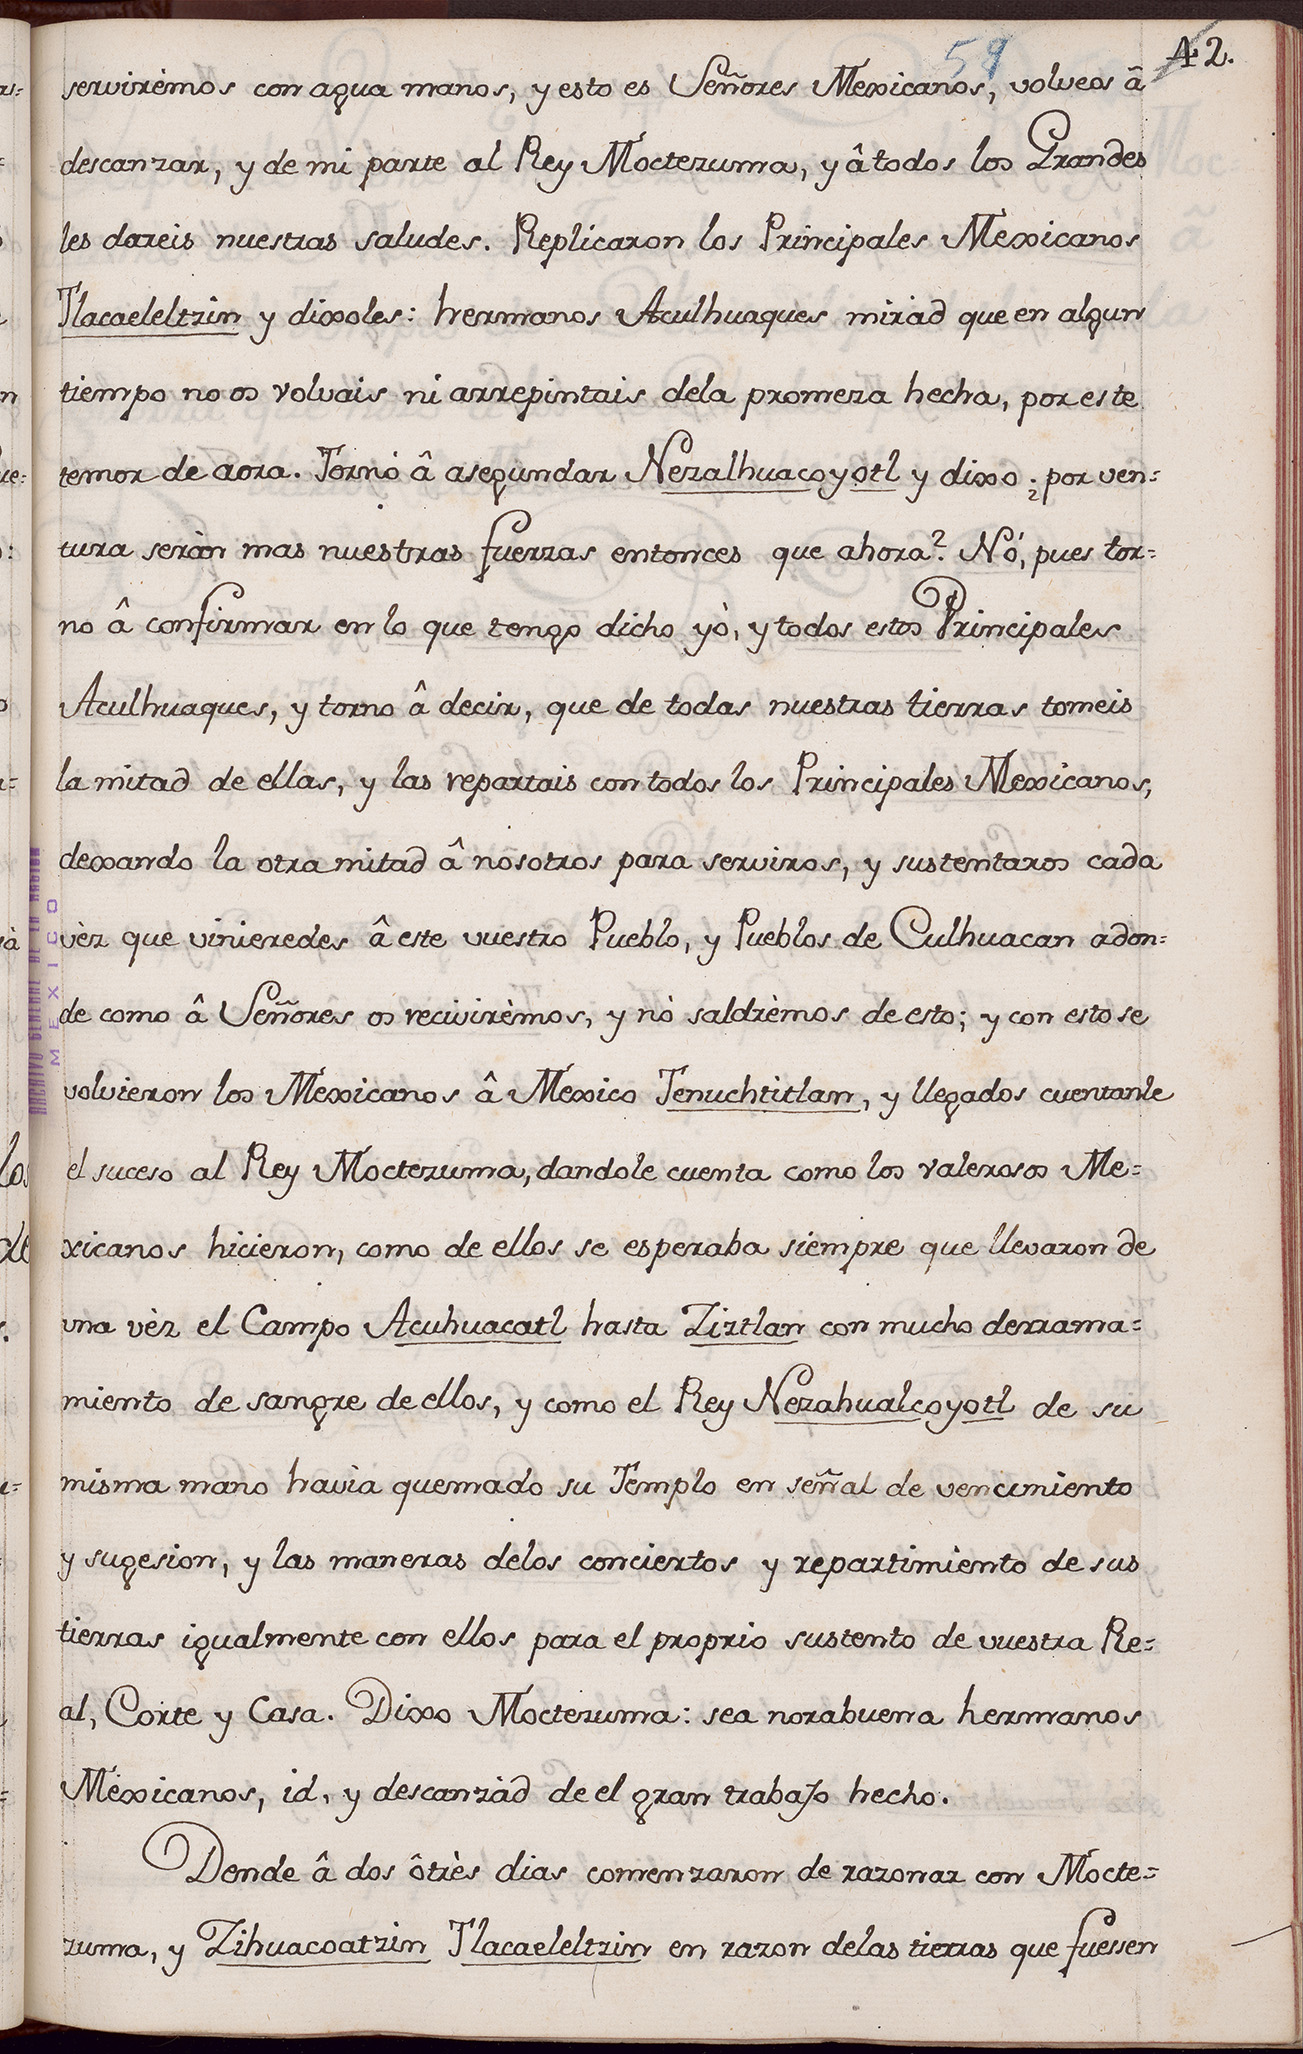 59
42.
servirèmos con agua manos, y esto es Señores Mexicanos, volveos â
descanzar, y de mi parte al Rey Moctezuma, y â todos los Grandes
les dareis nuestras saludes. Replicaron los Principales Mexicanos
Tlacaeleltzin y dixoles: hermanos Aculhuaques mirad que en algun
tiempo no os volvais ni arrepintais dela promeza hecha, por este
temor de aora. Tornó â asegundar Nezalhuacoyotl y dixo ¿por ven=
tura seràn mas nuestras fuerzas entonces que ahora? Nó, pues tor=
no â confirmar en lo que tengo dicho yò, y todos estos Principales
Aculhuaques, y torno â decir, que de todas nuestras tierras tomeis
la mitad de ellas, y las repartais con todos los Principales Mexicanos,
dexando la otra mitad â nosotros para serviros, y sustentaros cada
vèz que vinieredes â este vuestro Pueblo, y Pueblos de Culhuacan adon=
de como â Señores os recivirèmos, y nò saldrèmos de esto; y con esto se
volvieron los Mexicanos â Mexico Tenuchtitlan, y llegados cuentanle
el suceso al Rey Moctezuma, dandole cuenta como los valerosos Me=
xicanos hicieron, como de ellos se esperaba siempre que llevaron de
una vèz el Campo Acuhuacatl hasta Ziztlan con mucho derrama=
miento de sangre de ellos, y como el Rey Nezahualcoyotl de su
misma mano havia quemado su Templo en señal de vencimiento
y sugesion, y las maneras delos conciertos y repartimiento de sus
tierras igualmente con ellos para el proprio sustento de vuestra Re=
al, Corte y Casa. Dixo Moctezuma: sea norabuena hermanos
Mexicanos, id, y descanzàd de el gran trabajo hecho.
Dende â dos ôtrès dias comenzaron de razonar con Mocte=
zuma, y Zihuacoatzin Tlacaeleltzin en razon delas tierras que fuessen
ARCHIVO GENERAL DE LA NACION
MEXICO